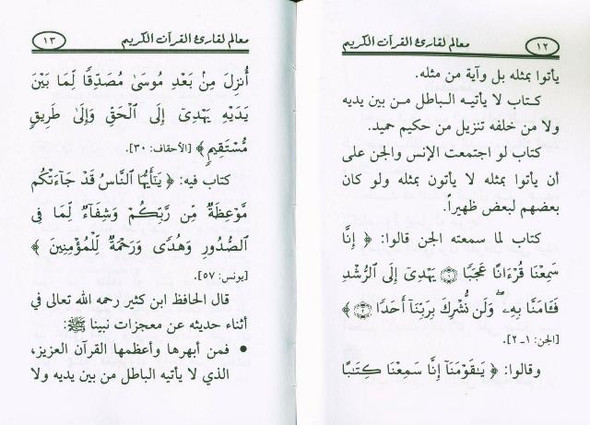 ١٢
معالم لقارئ القرآن الكريم
يأتوا بمثله بل وآية من مثله.
كتاب لا يأتيه الباطل من بين يديه
ولا من خلفه تنزيل من حكيم حميد.
كتاب لو اجتمعت الإنس والجن على
أن يأتوا بمثله لا يأتون بمثله ولو كان
بعضهم لبعض ظهيراً.
كتاب لما سمعته الجن قالوا: ﴿ إِنَّا
سَمِعْنَا قُرْءَانًا عَجَبًا ۝١ يَهْدِىٓ إِلَى ٱلرُّشْدِ
فَـَٔامَنَّا بِهِۦ ۖ وَلَن نُّشْرِكَ بِرَبِّنَآ أَحَدًا ۝٢ ﴾
[الجن: ١ـ٢].
وقالوا: ﴿ يَـٰقَوْمَنَآ إِنَّا سَمِعْنَا كِتَـٰبًا
معالم لقارئ القرآن الكريم
١٣
أُنزِلَ مِنۢ بَعْدِ مُوسَىٰ مُصَدِّقًا لِّمَا بَيْنَ
يَدَيْهِ يَهْدِىٓ إِلَى ٱلْحَقِّ وَإِلَىٰ طَرِيقٍ
مُّسْتَقِيمٍ ﴾ [الأحقاف: ٣٠].
كتاب فيه: ﴿ يَـٰٓأَيُّهَا ٱلنَّاسُ قَدْ جَآءَتْكُم
مَّوْعِظَةٌ مِّن رَّبِّكُمْ وَشِفَآءٌ لِّمَا فِى
ٱلصُّدُورِ وَهُدًى وَرَحْمَةٌ لِّلْمُؤْمِنِينَ ﴾
[يونس: ٥٧].
قال الحافظ ابن كثير رحمه الله تعالى في
أثناء حديثه عن معجزات نبينا ﷺ:
• فمن أبهرها وأعظمها القرآن العزيز،
الذي لا يأتيه الباطل من بين يديه ولا